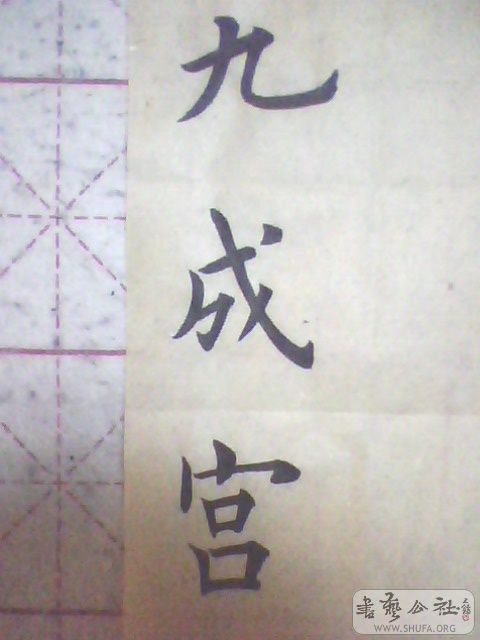 九成宫
书艺公社
WWW.SHUFA.ORG